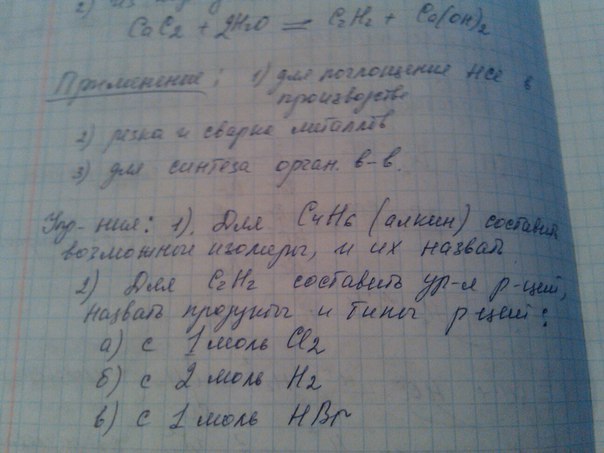 2) из
CaC2 + 2H2O = C2H2 + Ca(OH)2
Применение: 1) для поглощение HCl в
производстве
2) резка и сварка металлов
3) для синтеза орган. в-в.
Упр-ния: 1). Для C4H6 (алкин) составить
возможные изомеры, и их назвать
2) Для C2H2 составить ур-я р-ций,
назвать продукты и типы р-ций:
а) с 1 моль Cl2
б) с 2 моль H2
в) с 1 моль HBr